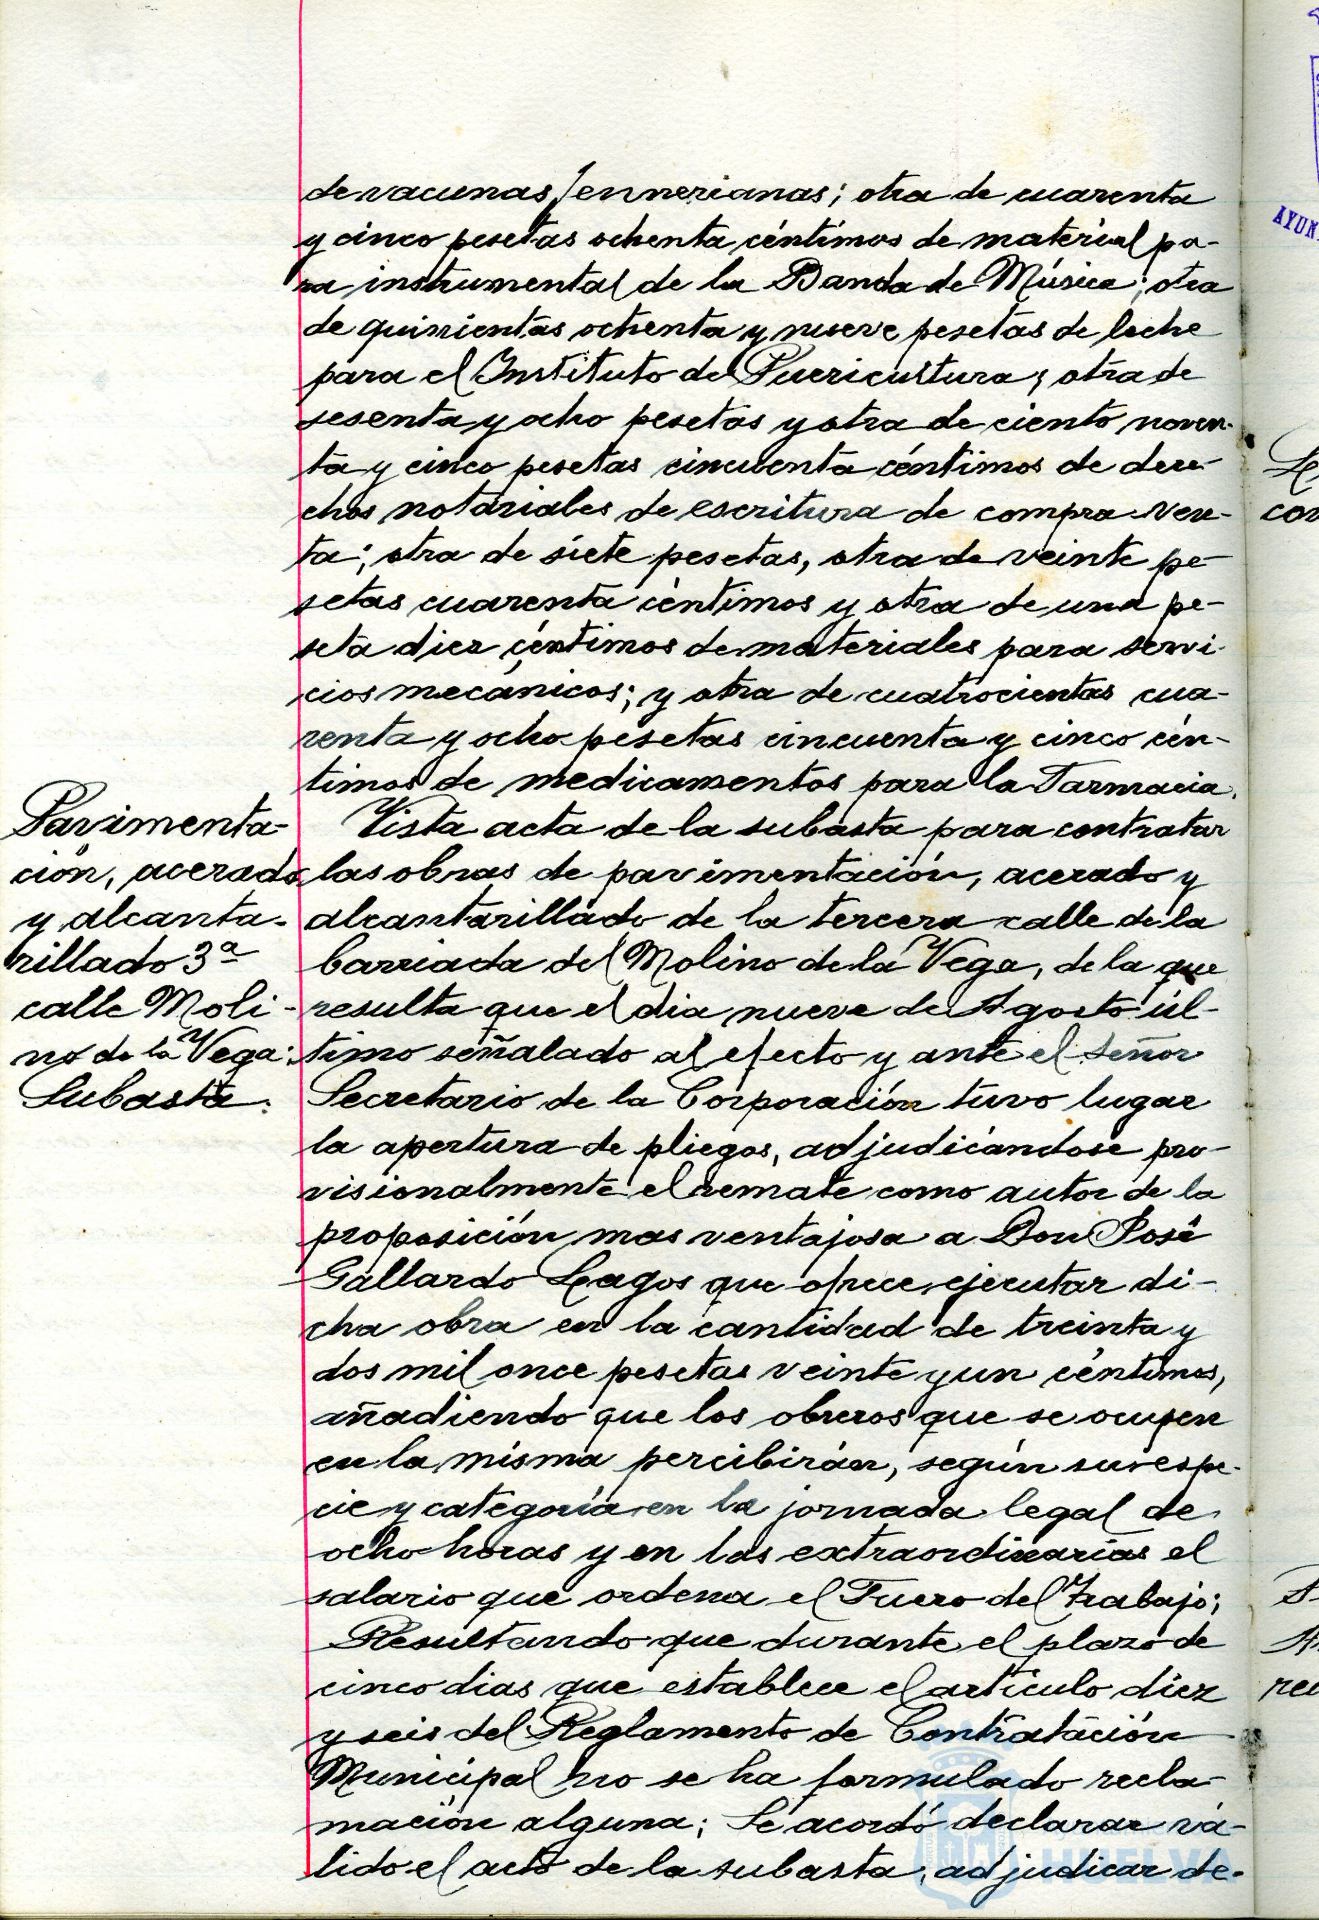 de vacunas Jennerianas; otra de cuarenta
y cinco pesetas ochenta céntimos de material pa-
ra instrumental de la Banda de Música; otra
de quinientas ochenta y nueve pesetas de leche
para el Instituto de Puericultura; otra de
sesenta y ocho pesetas y otra de ciento noven-
ta y cinco pesetas cincuenta céntimos de dere-
chos notariales de escritura de compra ven-
ta; otra de siete pesetas, otra de veinte pe-
setas cuarenta céntimos y otra de una pe-
seta diez céntimos de materiales para servi-
cios mecánicos; y otra de cuatrocientas cua-
renta y ocho pesetas cincuenta y cinco cén-
timos de medicamentos para la Farmacia.
Pavimenta-
ción, acerado
y alcanta-
rillado 3ª
calle Moli-
no de la Vega:
Subasta.
Vista acta de la subasta para contratar
las obras de pavimentación, acerado y
alcantarillado de la tercera calle de la
barriada del Molino de la Vega, de la que
resulta que el dia nueve de Agosto úl-
timo señalado al efecto y ante el Señor
Secretario de la Corporación tuvo lugar
la apertura de pliegos, adjudicándose pro-
visionalmente el remate como autor de la
proposición mas ventajosa a Don José
Gallardo Lagos que ofrece ejecutar di-
cha obra en la cantidad de treinta y
dos mil once pesetas veinte y un céntimos,
añadiendo que los obreros que se ocupen
en la misma percibirán, según su espe-
cie y categoría en la jornada legal de
ocho horas y en las extraordinarias el
salario que ordena el Fuero del Trabajo;
Resultando que durante el plazo de
cinco dias que establece el artículo diez
y seis del Reglamento de Contratación
Municipal no se ha formulado recla-
mación alguna; Se acordó declarar vá-
lido el acto de la subasta, adjudicar de-
HUELVA